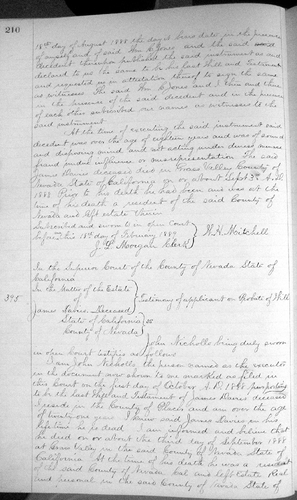 210
18th day of August 1888 the day it bears date in the presence
of myself and of said Wm C Jones and the said
decedent thereupon published the said instrument as and
declared to us the same to be his last Will and Testament
and requested us in attestation thereof to sign the same
as witnesses. The said Wm C Jones and I then and there
in the presence of the said decedent and in the presence
of each other subscribed our names as witnesses to the
said instrument
At the time of executing the said instrument said
decedent was over the age of eighteen years and was of sound
and disposing mind and not acting under duress menace
fraud undue influence or misrepresentation. The said
James Davis deceased died in Grass Valley County of
Nevada State of California on or about Sept 3d A.D.
1888 Prior to his death he had been and was at the
time of his death a resident of the said County of
Nevada and left estate therein
Subscribed and sworn to in open Court
before this 18th day of February 1889
J. L. Morgan Clerk
In the Superior Court of the County of Nevada State of
California
395
In the Matter of the Estate
of
James Davis, Deceased
Testimony of applicant on Probate of Will
State of California
County of Nevada
ss
John Nicholls being duly sworn
in open Court testifies as follows
I am John Nicholls the person named as the executor
in the document now shown to me marked as filed in
this Court on the first day of October A.D. 1888 purporting
to be the last Will and Testament of James Davis deceased
I reside in the County of Placer and am over the age
of twenty one years I knew said James Davis in his
life time he is dead I am informed and believe that
he died on or about the third day of September 1888
at Grass Valley in the said County of Nevada State of
California At the time of his death he was a resident
of the said County of Nevada Cal and left estate Real
and personal in the said County of Nevada State of